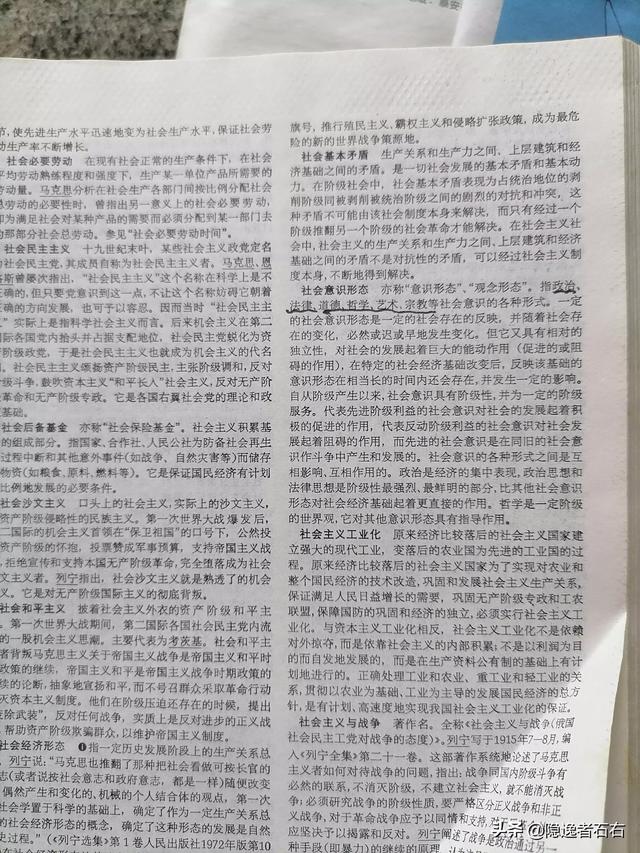 节,使先进生产水平迅速地变为社会生产水平,保证社会劳
动生产率不断增长。
社会必要劳动 在现有社会正常的生产条件下,在社会
平均劳动熟练程度和强度下,生产某一单位产品所需要的
劳动量。马克思分析在社会生产各部门间按比例分配社会
总劳动的必要性时,曾指出另一意义上的社会必要劳动,
即为满足社会对某种产品的需要而必须分配到某一部门去
的那部分社会总劳动。参见“社会必要劳动时间”。
社会民主主义 十九世纪末叶,某些社会主义政党定名
为社会民主党,其成员自称为社会民主主义者。马克思、恩
格斯曾屡次指出,“社会民主主义”这个名称在科学上是不
正确的,但只要党意识到这一点,不让这个名称妨碍它朝着
正确的方向发展,也可予以容忍。因而当时“社会民主主
义”实际上是指科学社会主义而言。后来机会主义在第二
国际各国党内抬头并占据支配地位,社会民主党蜕化为资
产阶级政党,于是社会民主主义也就成为机会主义的代名
词。社会民主主义颂扬资产阶级民主,主张阶级调和,反对
阶级斗争,鼓吹资本主义“和平长入”社会主义,反对无产阶
级革命和无产阶级专政。它是各国右翼社会党的理论和政
策基础。
社会后备基金 亦称“社会保险基金”。社会主义积累基
金的组成部分。指国家、合作社、人民公社为防备社会再生
产过程中断和其他意外事件(如战争、自然灾害等)而储存
的物资(如粮食、原料、燃料等)。它是保证国民经济有计划
按比例地发展的必要条件。
社会沙文主义 口头上的社会主义,实际上的沙文主义,
即资产阶级侵略性的民族主义。第一次世界大战爆发后,
第二国际的机会主义首领在“保卫祖国”的口号下,公然投
入资产阶级的怀抱,投票赞成军事预算,支持帝国主义战
争,拒绝宣传和支持本国无产阶级革命,完全堕落成为社会
沙文主义者。列宁指出,社会沙文主义就是熟透了的机会
主义。它是对无产阶级国际主义的彻底背叛。
社会和平主义 披着社会主义外衣的资产阶级和平主
义。第一次世界大战期间,第二国际各国社会民主党内流
行的一股机会主义思潮。主要代表为考茨基。社会和平主
义者背叛马克思主义关于帝国主义战争是帝国主义和平时
期政策的继续,帝国主义和平是帝国主义战争时期政策的
继续的论断,抽象地宣扬和平,而不号召群众采取革命行动
消灭资本主义制度。他们在阶级压迫还存在的时候,提出
“废除武装”,反对任何战争,实质上是反对进步的正义战
争,帮助资产阶级欺骗群众,以维护帝国主义制度。
社会经济形态 ❶指一定历史发展阶段上的生产关系总
和。列宁说:“马克思也推翻了那种把社会看做可按长官的
意志(或者说按社会意志和政府意志,都是一样)随便改变
的、偶然产生和变化的、机械的个人结合体的观点,第一次
把社会学置于科学的基础上,确定了作为一定生产关系总
和的社会经济形态的概念,确定了这种形态的发展是自然
历史过程。”(《列宁选集》第1卷人民出版社1972年版第10
旗号,推行殖民主义、霸权主义和侵略扩张政策,成为最危
险的新的世界战争策源地。
社会基本矛盾 生产关系和生产力之间、上层建筑和经
济基础之间的矛盾。是一切社会发展的基本矛盾和基本动
力。在阶级社会中,社会基本矛盾表现为占统治地位的剥
削阶级同被剥削被统治阶级之间的剧烈的对抗和冲突,这
种矛盾不可能由该社会制度本身来解决,而只有经过一个
阶级推翻另一个阶级的社会革命才能解决。在社会主义社
会中,社会主义的生产关系和生产力之间、上层建筑和经济
基础之间的矛盾不是对抗性的矛盾,可以经过社会主义制
度本身,不断地得到解决。
社会意识形态 亦称“意识形态”、“观念形态”。指政治、
法律、道德、哲学、艺术、宗教等社会意识的各种形式。一定
的社会意识形态是一定的社会存在的反映,并随着社会存
在的变化,必然或迟或早地发生变化。但它又具有相对的
独立性,对社会的发展起着巨大的能动作用(促进的或阻
碍的作用),在特定的社会经济基础改变后,反映该基础的
意识形态在相当长的时间内还会存在,并发生一定的影响。
自从阶级产生以来,社会意识具有阶级性,并为一定的阶级
服务。代表先进阶级利益的社会意识对社会的发展起着积
极的促进的作用,代表反动阶级利益的社会意识对社会发
展起着阻碍的作用,而先进的社会意识是在同旧的社会意
识作斗争中产生和发展的。社会意识的各种形式之间是互
相影响、互相作用的。政治是经济的集中表现,政治思想和
法律思想是阶级性最强烈、最鲜明的部分,比其他社会意识
形态对社会经济基础起着更直接的作用。哲学是一定阶级
的世界观,它对其他意识形态具有指导作用。
社会主义工业化 原来经济比较落后的社会主义国家
建立强大的现代工业,变落后的农业国为先进的工业国的过
程。原来经济比较落后的社会主义国家为了实现对农业和
整个国民经济的技术改造,巩固和发展社会主义生产关系,
保证满足人民日益增长的需要,巩固无产阶级专政和工农
联盟,保障国防的巩固和经济的独立,必须实行社会主义工
业化。与资本主义工业化相反,社会主义工业化不是依赖
对外掠夺,而是依靠社会主义的内部积累;不是以利润为目
的而自发地发展的,而是在生产资料公有制的基础上有计
划地进行的。正确处理工业和农业、重工业和轻工业的关
系,贯彻以农业为基础、工业为主导的发展国民经济的总方
针,是有计划、高速度地实现我国社会主义工业化的保证。
社会主义与战争 著作名。全称《社会主义与战争(俄国
社会民主工党对战争的态度)》。列宁写于1915年7—8月,编
入《列宁全集》第二十一卷。这部著作系统地论述了马克思
主义者如何对待战争的问题,指出:战争同国内阶级斗争有
必然的联系,不消灭阶级,不建立社会主义,就不能消灭战
争;必须研究战争的阶级性质,要严格区分正义战争和非正
义战争,对于革命战争应予以同情和支持,
应坚决予以揭露和反对。列宁阐述了战争是政治通过另一
种手段(即暴力)的继续的原理
头条 @隐逸者石右